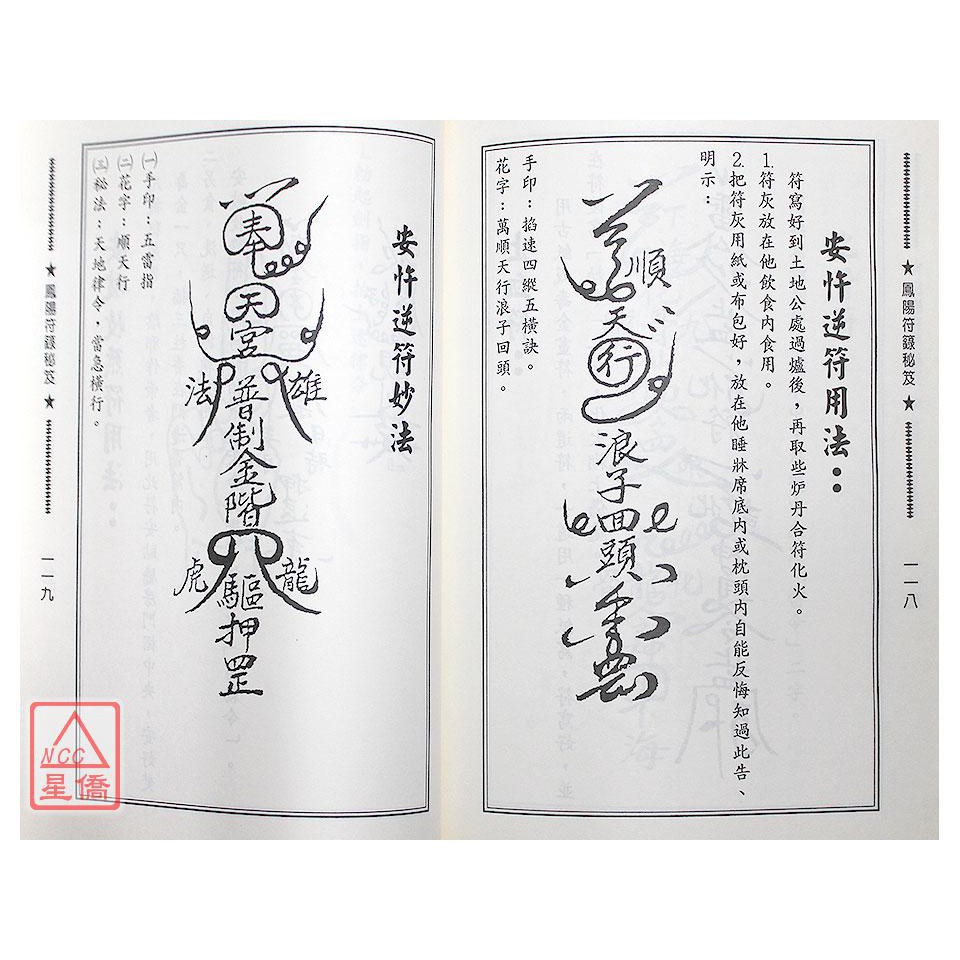 ★鳳陽符籙秘笈★
一一八
安忤逆符用法：
符寫好到土地公處過爐後，再取些炉丹合符化火。
1.符灰放在他飲食內食用。
2.把符灰用紙或布包好，放在他睡牀席底內或枕頭內自能反悔知過此告、
明示：
順
天
行
浪子回頭
手印：掐速四縱五橫訣。
花字：萬順天行浪子回頭。
安忤逆符妙法
奉
天宮
雄
法
普制金階
龍
虎
驅押罡
㈠手印：五雷指
㈡花字：順天行
㈢秘法：天地律令，當急橫行。
★鳳陽符籙秘笈★
一一九
NCC
星僑